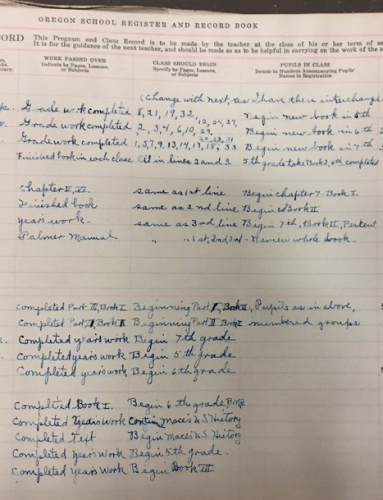 OREGON SCHOOL REGISTER AND RECORD BOOK
CORD This Program and Class Record is to be made by the teacher at the close of his or her term of
It is for the guidance of the next teacher, and should be made so as to be helpful in carrying on the work of the
WORK PASSED OVER
Indicate by Pages, Lessons,
or Subjects
CLASS SHOULD BEGIN
Specify by Pages, Lessons,
or Subjects
PUPILS IN CLASS
Denote by Numbers Accompanying Pupils'
Names in Registration
(Change with next, as I have them interchanged
Grade work completed 8, 21, 19, 32, Begin new book in 8th
Grade work completed 2, 3, 4, 6, 10, Begin new book in 6th
Grade work completed Begin new book in 7th
Finished book in each class All in lines 2 and 3. 5th grade take Book 2, 6th completes
Chapter same as 1st line Begin Chapter 7 - Book I.
Finished book same as 2nd line Begin Book II
years work. same as 3rd line Begin 7th, Book II, Percent
Palmer Manual " " (1st, 2nd, 3rd - Review whole book.
Completed Part II, Book I Beginning Part Book Pupils as in above,
Completed Part Book I Beginning Part II Book I numbered groups
Completed years work Begin 7th grade
Completed years work Begin 5th grade
Completed years work Begin 6th grade
Completed Book I. Begin 6th grade Book
Completed Years Work Mace's U.S. History
Completed Text Begin Mace's U.S. History
Completed Years Work Begin 5th grade.
Completed Years Work Begin Book III